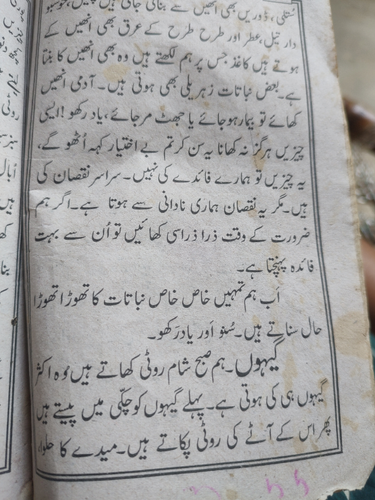 ستلی، ڈوریں بھی انھیں سے بنائی جاتی ہیں
دار تیل، عطر اور طرح طرح کے عرق بھی انھیں کے
ہوتے ہیں کاغذ جس پر ہم لکھتے ہیں وہ بھی انھیں کا بنتا
ہے۔ بعض نباتات زہریلی بھی ہوتی ہیں۔ آدمی انھیں
کھائے تو بیمار ہو جائے یا جھٹ مر جائے، یاد رکھو! ایسی
چیزیں ہرگز نہ کھانا یہ سن کر تم بے اختیار کہہ اُٹھو گے،
یہ چیزیں تو ہمارے فائدے کی نہیں۔ سراسر نقصان کی
ہیں۔ مگر یہ نقصان ہماری نادانی سے ہوتا ہے۔ اگر ہم
ضرورت کے وقت ذرا ذرا سی کھائیں تو اُن سے بہت
فائدہ پہنچتا ہے۔
اَب ہم تمہیں خاص خاص نباتات کا تھوڑا تھوڑا
حال سناتے ہیں۔ سُنو اور یاد رکھو۔
گیہوں۔ ہم صبح شام روٹی کھاتے ہیں وُہ اکثر
گیہوں ہی کی ہوتی ہے۔ پہلے گیہوں کو چکّی میں پیستے ہیں
پھر اس کے آٹے کی روٹی پکاتے ہیں۔ میدے کا حلوا،